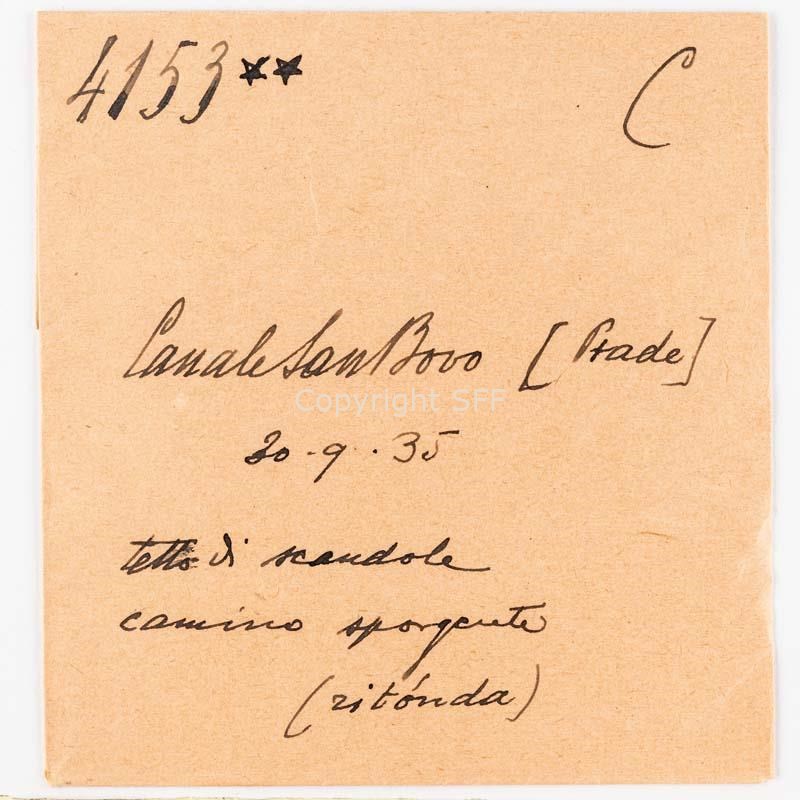 4153** C
Canale San Bovo [Prade]
Copyright SFF
20.9.35
tetto di scandole
camino sporgente
(ritónda)